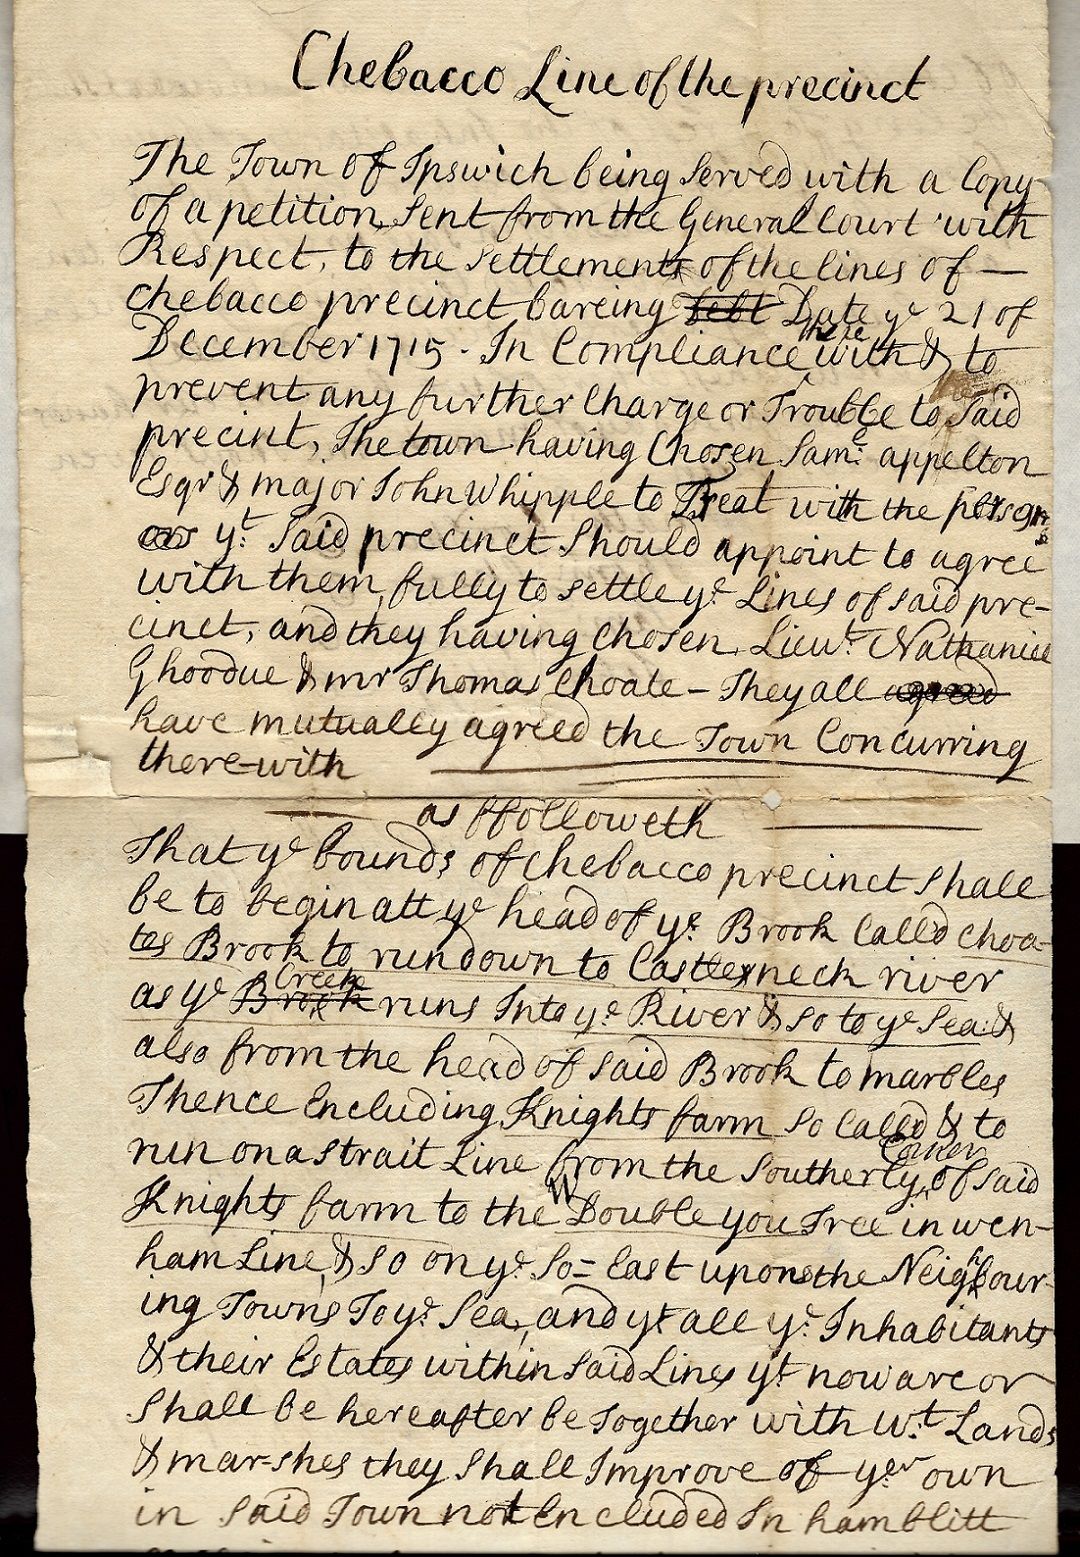 Chebacco Line of the precinct
The Town of Ipswich being served with a Copy
of a petition, sent from the General Court with
Respect, to the settlements of the lines of —
Chebacco precinct bareing Date ye 21 of
December 1715 - In Compliance there with & to
prevent any further Charge or Trouble to said
precint, The town having Chosen Samll appelton
Esqr & major John Whipple to Treat with the persons
yt said precinct should appoint to agree
with them, fully to settle ye Lines of said pre-
cinct, and they having chosen Lieut Nathaniel
Ghoodue & mr Thomas Choate - They all agreed
have mutually agreed the Town Concurring
there-with
as ffolloweth
That ye bounds of Chebacco precinct shall
be to begin att ye head of ye Brook Called Choa-
tes Brook to run down to Castle neck river
as ye Brook Creek runs Into ye River & so to ye Sea: &
also from the head of said Brook to marbles
Thence Encluding Knights farm so Called & to
run on a strait Line from the southerly Corner of said
Knights farm to the W Double you Tree in wen-
ham Line, & so on ye So= East upon the Neighbour-
ing Towns To ye Sea, and yt all ye Inhabitants
& their Estates within said Lines yt now are or
shall be hereafter be Together with wt Lands
& mar-shes they shall Improve of yer own
in said Town not Encluded In hamblitt